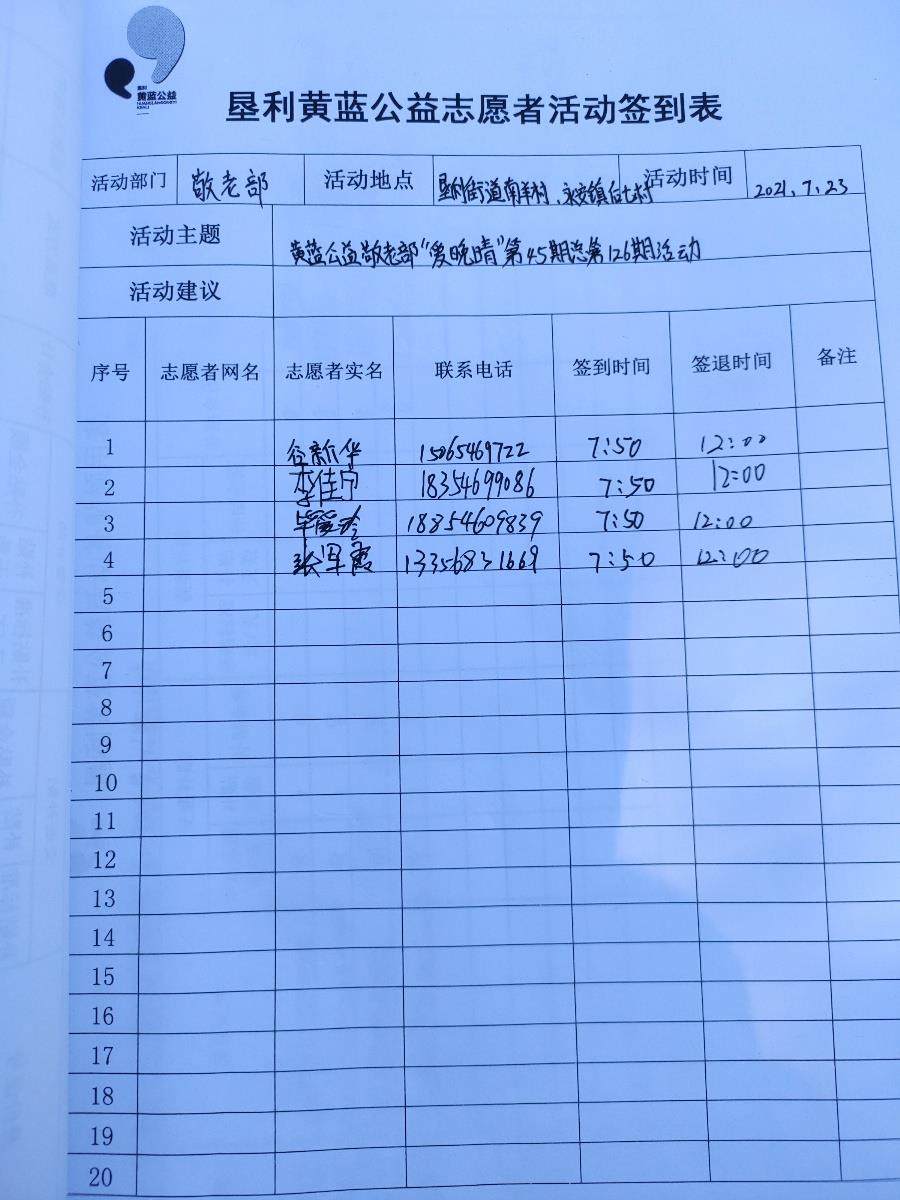 垦利
黄蓝公益
HUANGLANGONGYI
KENLI
垦利黄蓝公益志愿者活动签到表
活动部门 敬老部 活动地点 垦利街道南羊村、永安镇后七村 活动时间 2021.7.23
活动主题 黄蓝公益敬老部“爱晚晴”第45期总第126期活动
活动建议
序号 志愿者网名 志愿者实名 联系电话 签到时间 签退时间 备注
1 谷新华 15065469722 7:50 12:00
2 李佳宁 18354699086 7:50 12:00
3 18854609839 7:50 12:00
4 张军霞 13356831669 7:50 12:00
5
6
7
8
9
10
11
12
13
14
15
16
17
18
19
20